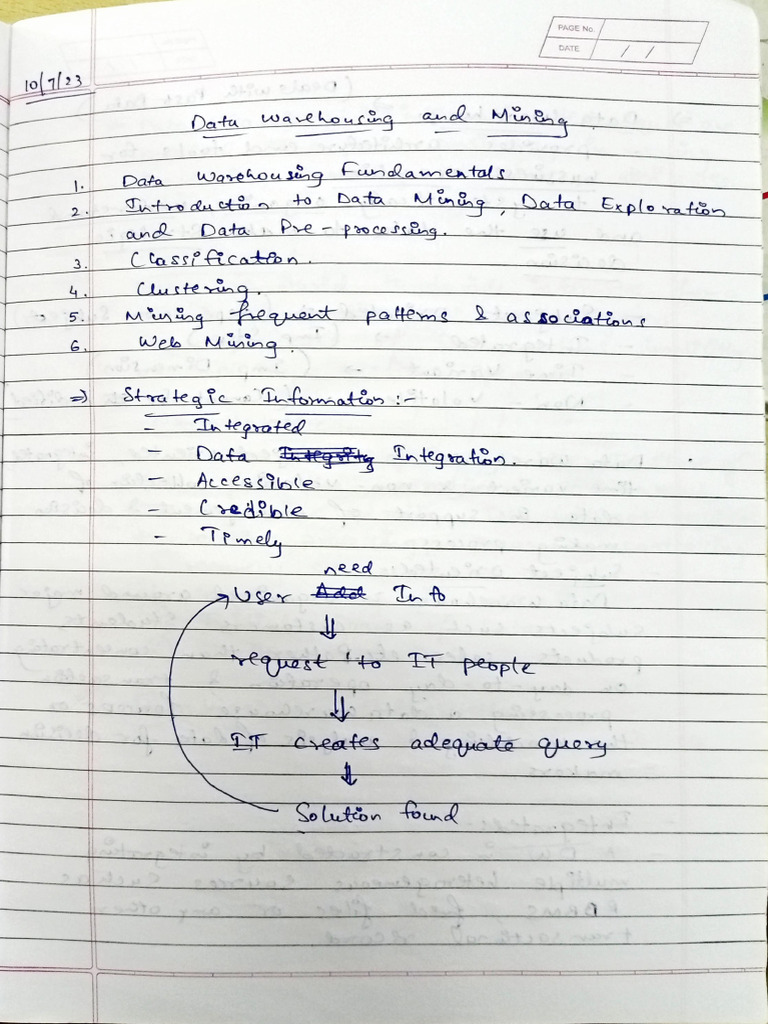 PAGE No.
DATE / /
10/7/23
Data Warehousing and Mining.
1. Data Warehousing Fundamentals
2. Introduction to Data Mining, Data Exploration
and Data Pre-processing.
3. Classification.
4. Clustering.
5. Mining frequent patterns & associations
6. Web Mining.
=> Strategic Information :-
- Integrated
- Data Integrity Integration.
- Accessible
- Credible
- Timely
need
User Add Info
⇓
request to IT people
⇓
IT creates adequate query
⇓
Solution found